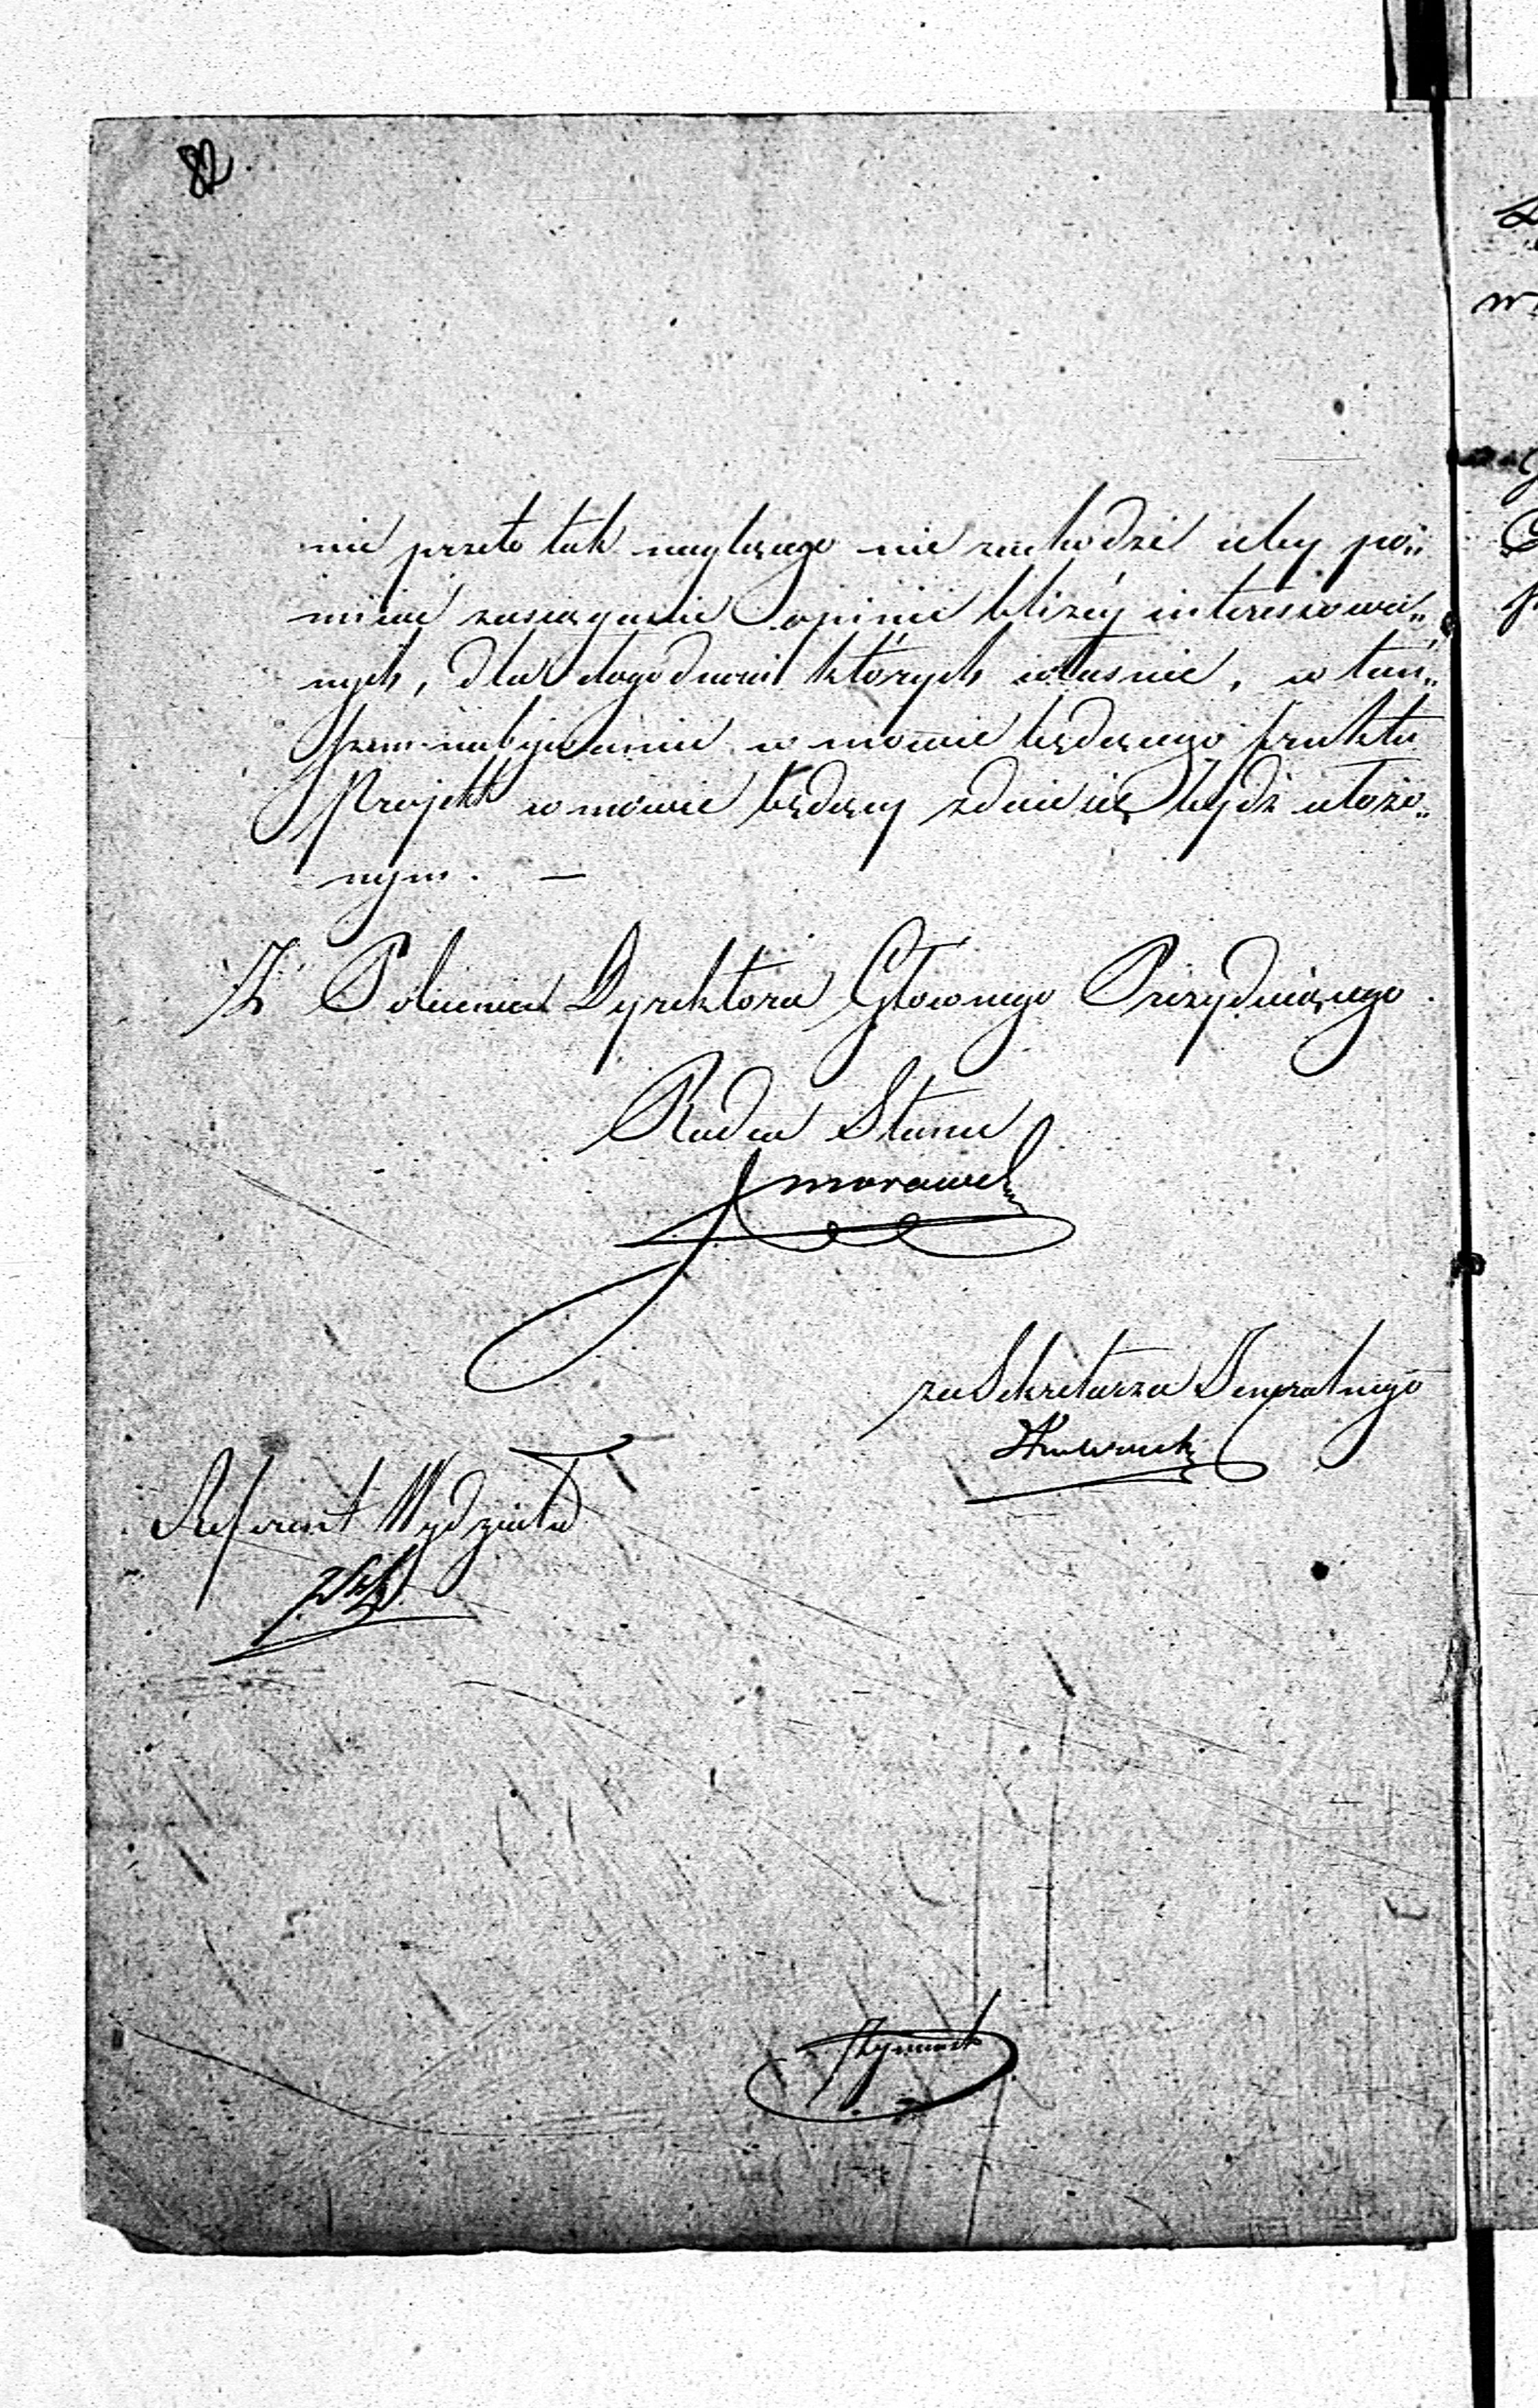 82
nie przeto tak naglącego nie zachodzi aby po„
minąć zasiągnienie opinii bliżéy interessowa„
nych, dla dogodności których właśnie, w tań„
szem nabywaniu w mowie będącego fruktu
Projekt w mowie będący zdaie się bydź ułożo„
nym. —
Z Polecenia Dyrektora Głownego Prezyduiącego
Radca Stanu
Jmorawsk
za Sekretarza Generalnego
Referent Wydziału